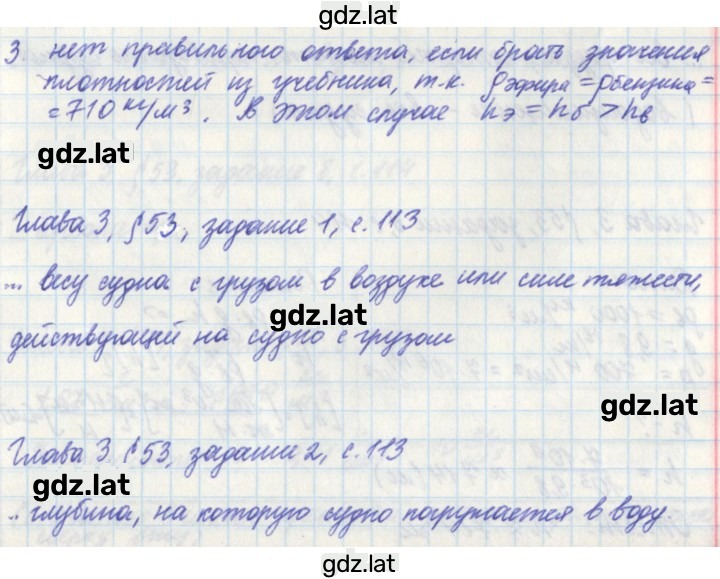 gdz.lat
3. нет правильного ответа, если брать значения
плотностей из учебника, т.к. ρэфира = ρбензина =
= 710 кг/м³. В этом случае hэ = hб > hв
gdz.lat
Глава 3, §53, задание 1, с. 113
... весу судна с грузом в воздухе или силе тяжести,
gdz.lat
действующей на судно с грузом
gdz.lat
Глава 3 §53, задание 2, с. 113
gdz.lat
... глубина, на которую судно погружается в воду.
gdz.lat